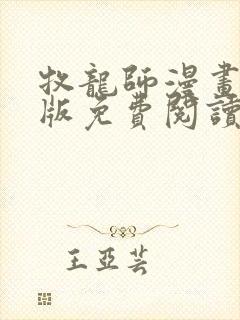 牧龍師漫畫
版免費閱讀
王亞芸